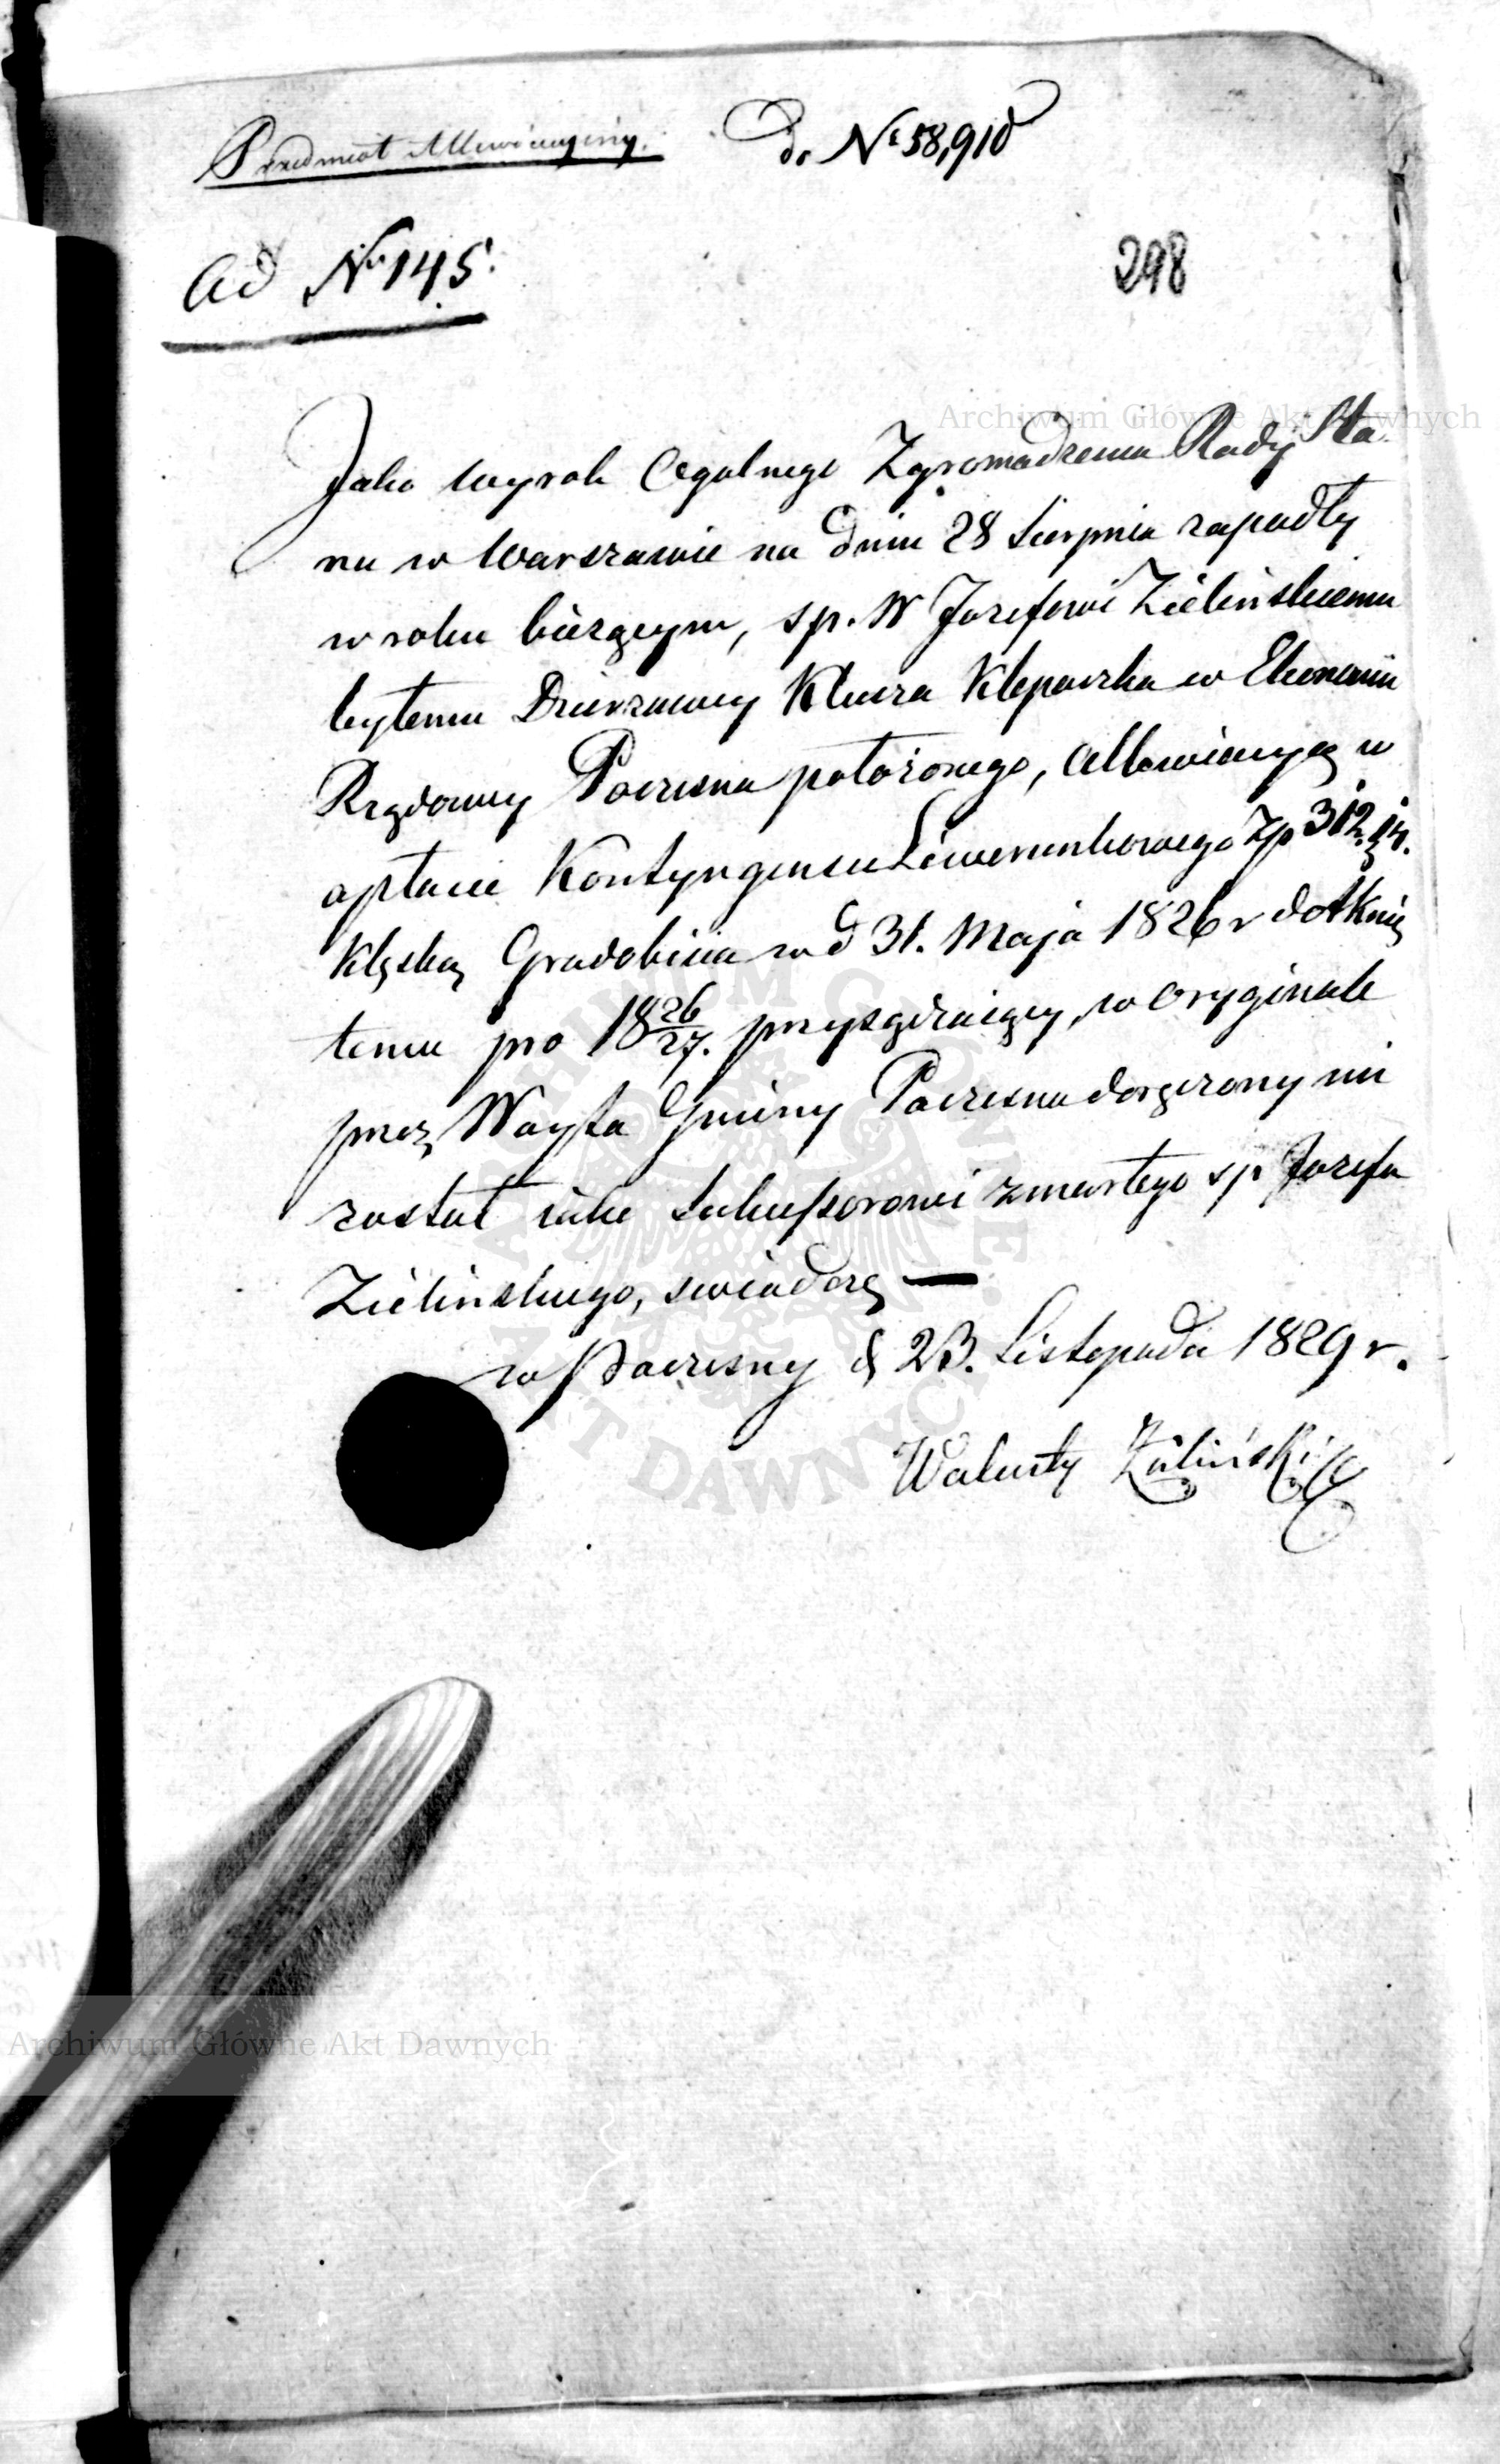 Przedmiot Allewiacyiny.
d. No 58,910
ad No 145.
298
Jako wyrok Ogulnego Zgromadzenia Rady Sta
nu w Warszawie na dniu 28 Sierpnia zapadły
w roku bieżącym, sp. W Jozefowi Zielinskiemu
byłemu Dzierzawcy Klucza Klepaczka w Ekonomii
Rządowey Poczesna położonego, allewiacyą w
opłacie Kontyngensu Liwerunkowego Zp 312
Klęską Gradobicia w d 31. Maja 1826 r dotknię
temu pro 18 26/27. przysądzaiący, w oryginale
przez Woyta Gminy Poczesna doręczony mi
został iako Sukcessorowi zmarłego sp Jozefa
Zielinskiego, swiadczę —
w Poczesny d 23. Listopada 1829 r.
Walenty Zieliński
Archiwum Główne Akt Dawnych
ARCHIWUM GŁÓWNE AKT DAWNYCH
Archiwum Główne Akt Dawnych